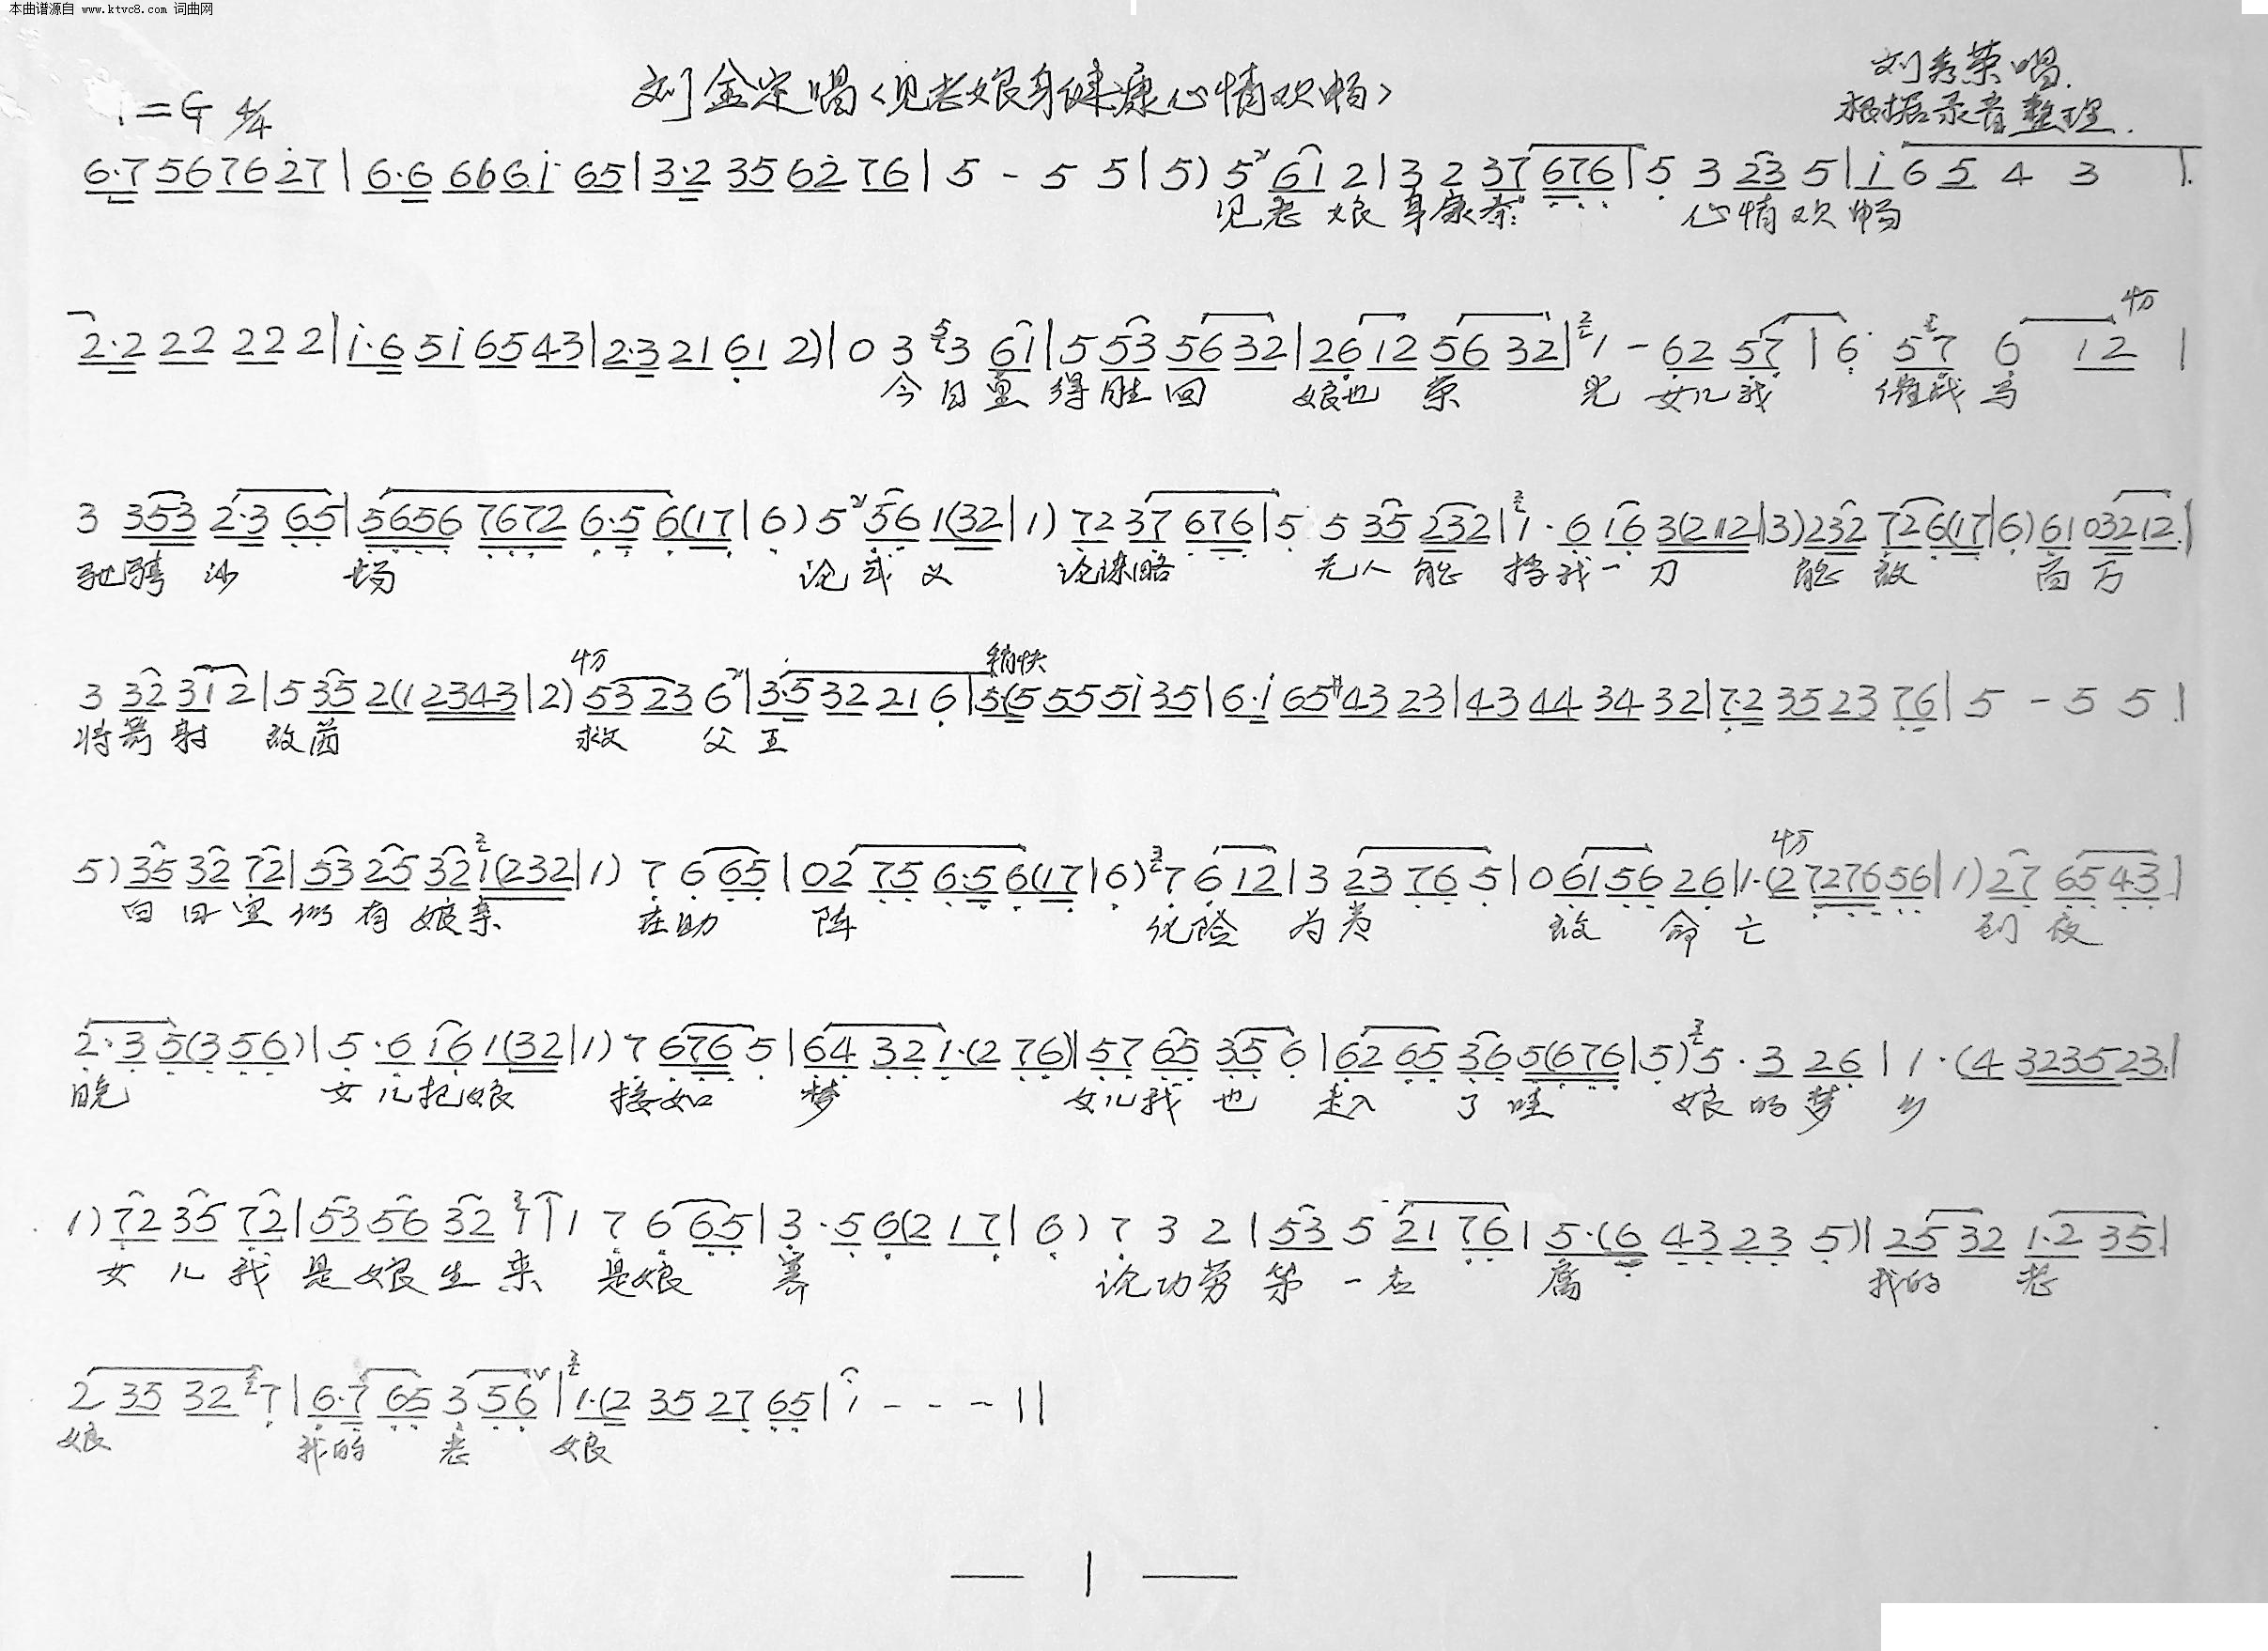 本曲谱源自 www.ktvc8.com 词曲网
刘金定唱<见老娘身健康心情欢畅>
刘秀荣唱.
根据录音整理.
1=G 4/4
6·7 56 76 27 | 6·6 666i 65 | 3·2 35 62 76 | 5 - 5 5 | 5) 5 6i 2 | 3 2 37 676 | 5 3 23 5 | i 6 5 4 3 |
见老娘身康泰 心情欢畅
2·2 22 22 2 | i·6 5i 65 43 | 2·3 21 61 2) | 0 3 3 6i | 5 53 56 32 | 26 12 56 32 | 1 - 62 57 | 6· 57 6 12 |
今日里得胜回 娘也荣 光 女儿我 催战马
3 353 2·3 65 | 5656 7672 6·5 6(17 | 6) 5 56 1(32 | 1) 72 37 676 | 5 5 35 232 | 1·6 16 3(212 | 3) 232 726(17 | 6) 61 03212 |
驰骋沙 场 论武义 论谋略 无人能 挡我一刀 能敌 百万
3 32 31 2 | 5 35 2(12343 | 2) 53 23 6 | 3·5 32 21 6 | 5(5 55 5i 35 | 6·i 65 #43 23 | 43 44 34 32 | 7·2 35 23 76 | 5 - 5 5 |
稍快
将 射 救 父王
5) 35 32 72 | 53 25 32 1(232 | 1) 7 6 65 | 02 75 6·5 6(17 | 6) 7 6 12 | 3 23 76 5 | 0 61 56 26 | 1·(2 7276 56 | 1) 27 65 43 |
白日里 有娘亲 在助 阵 化险为 敌 命亡 到夜
2·3 5(3 56) | 5·6 16 1(32 | 1) 7 676 5 | 64 32 1·(2 76) | 57 65 35 6 | 62 65 36 5(676 | 5) 5·3 26 | 1·(4 3235 23 |
晚 女儿把娘 接如 梦 女儿我也 走入 了哇 娘的梦 乡
1) 72 35 72 | 53 56 32 1 | 1 7 6 65 | 3·5 6(2 17 | 6) 7 3 2 | 53 5 21 76 | 5·(6 43 23 5) | 25 32 1·2 35 |
女儿我是娘生来 是娘 养 论功劳第一 我的 老
2 35 32 7 | 6·7 65 3 56 | 1·(2 35 27 65 | i - - - ||
娘 我的 老 娘
— 1 —